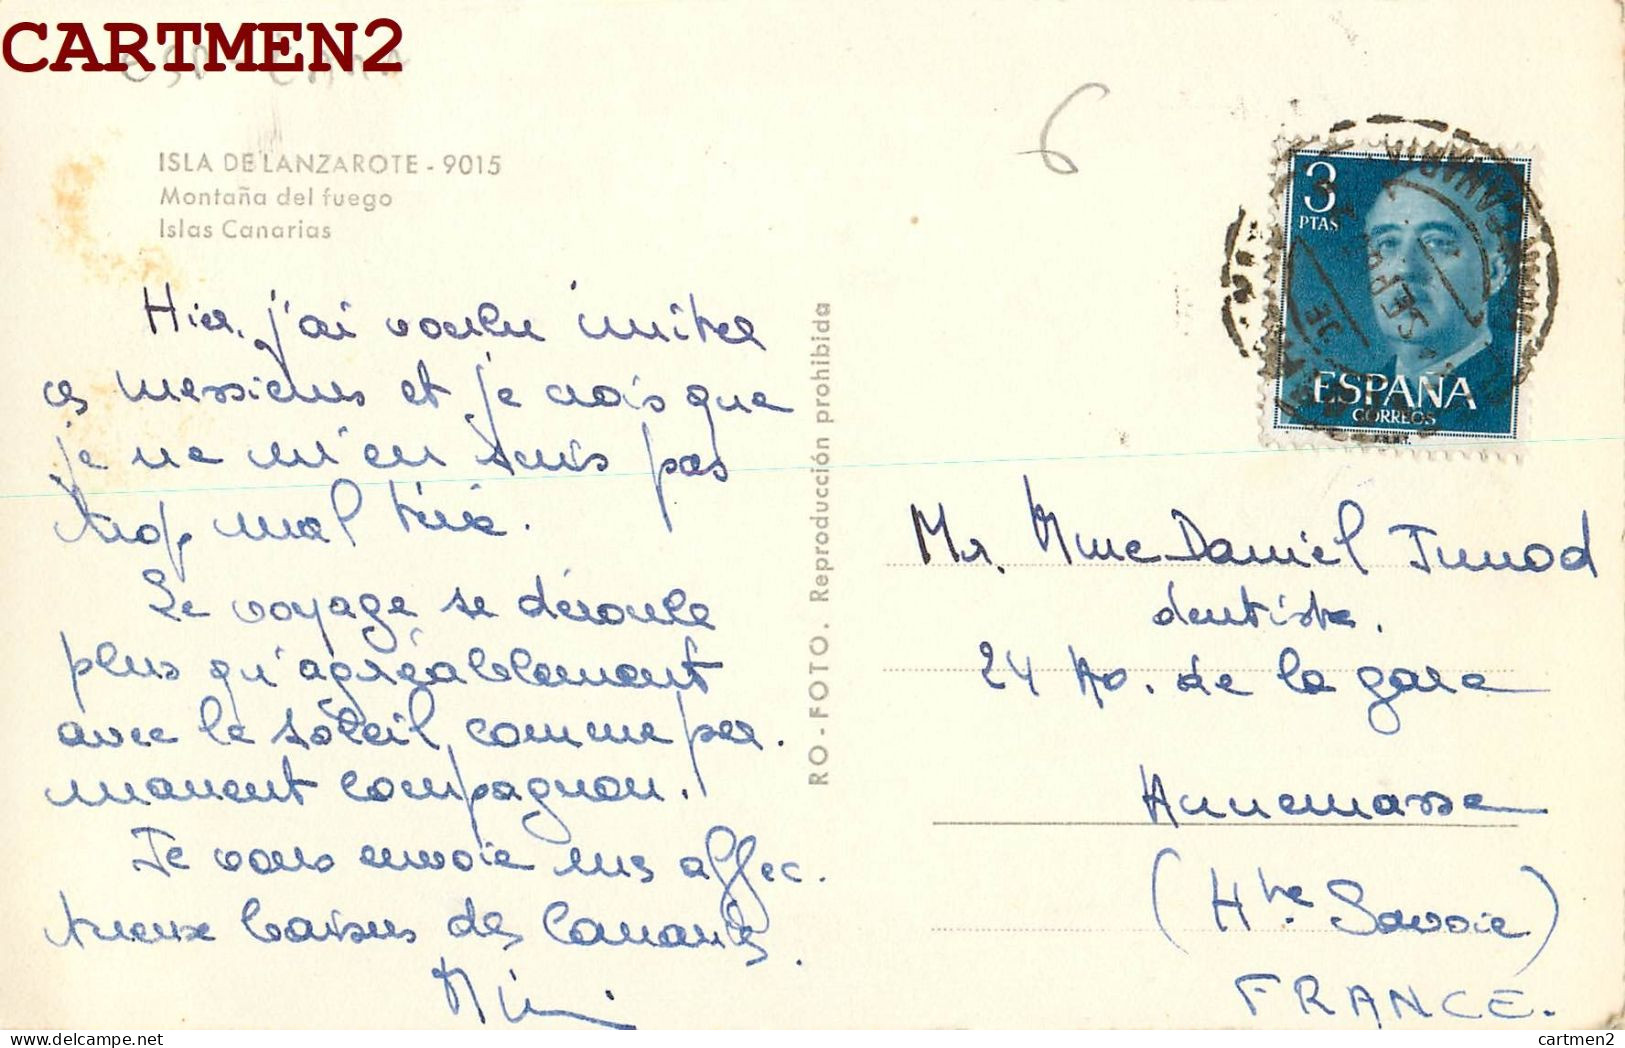 CARTMEN2
ISLA DE LANZAROTE - 9015
Montaña del fuego
Islas Canarias
Hier, j'ai voulu imiter
ces messieurs et je crois que
je ne m'en suis pas
trop mal tiré.
Le voyage se déroule
plus qu'agréablement
avec le soleil, comme per-
manent compagnon.
Je vous envoie mes affec-
tueux baisers des Canaries.
Mimi
RO - FOTO. Reproducción prohibida
6
3
PTAS
ESPAÑA
CORREOS
F.N.M.T.
Mr. Mme Daniel Junod
dentiste.
24 Av. de la gare
Annemasse
(Hte Savoie)
FRANCE.
cartmen2